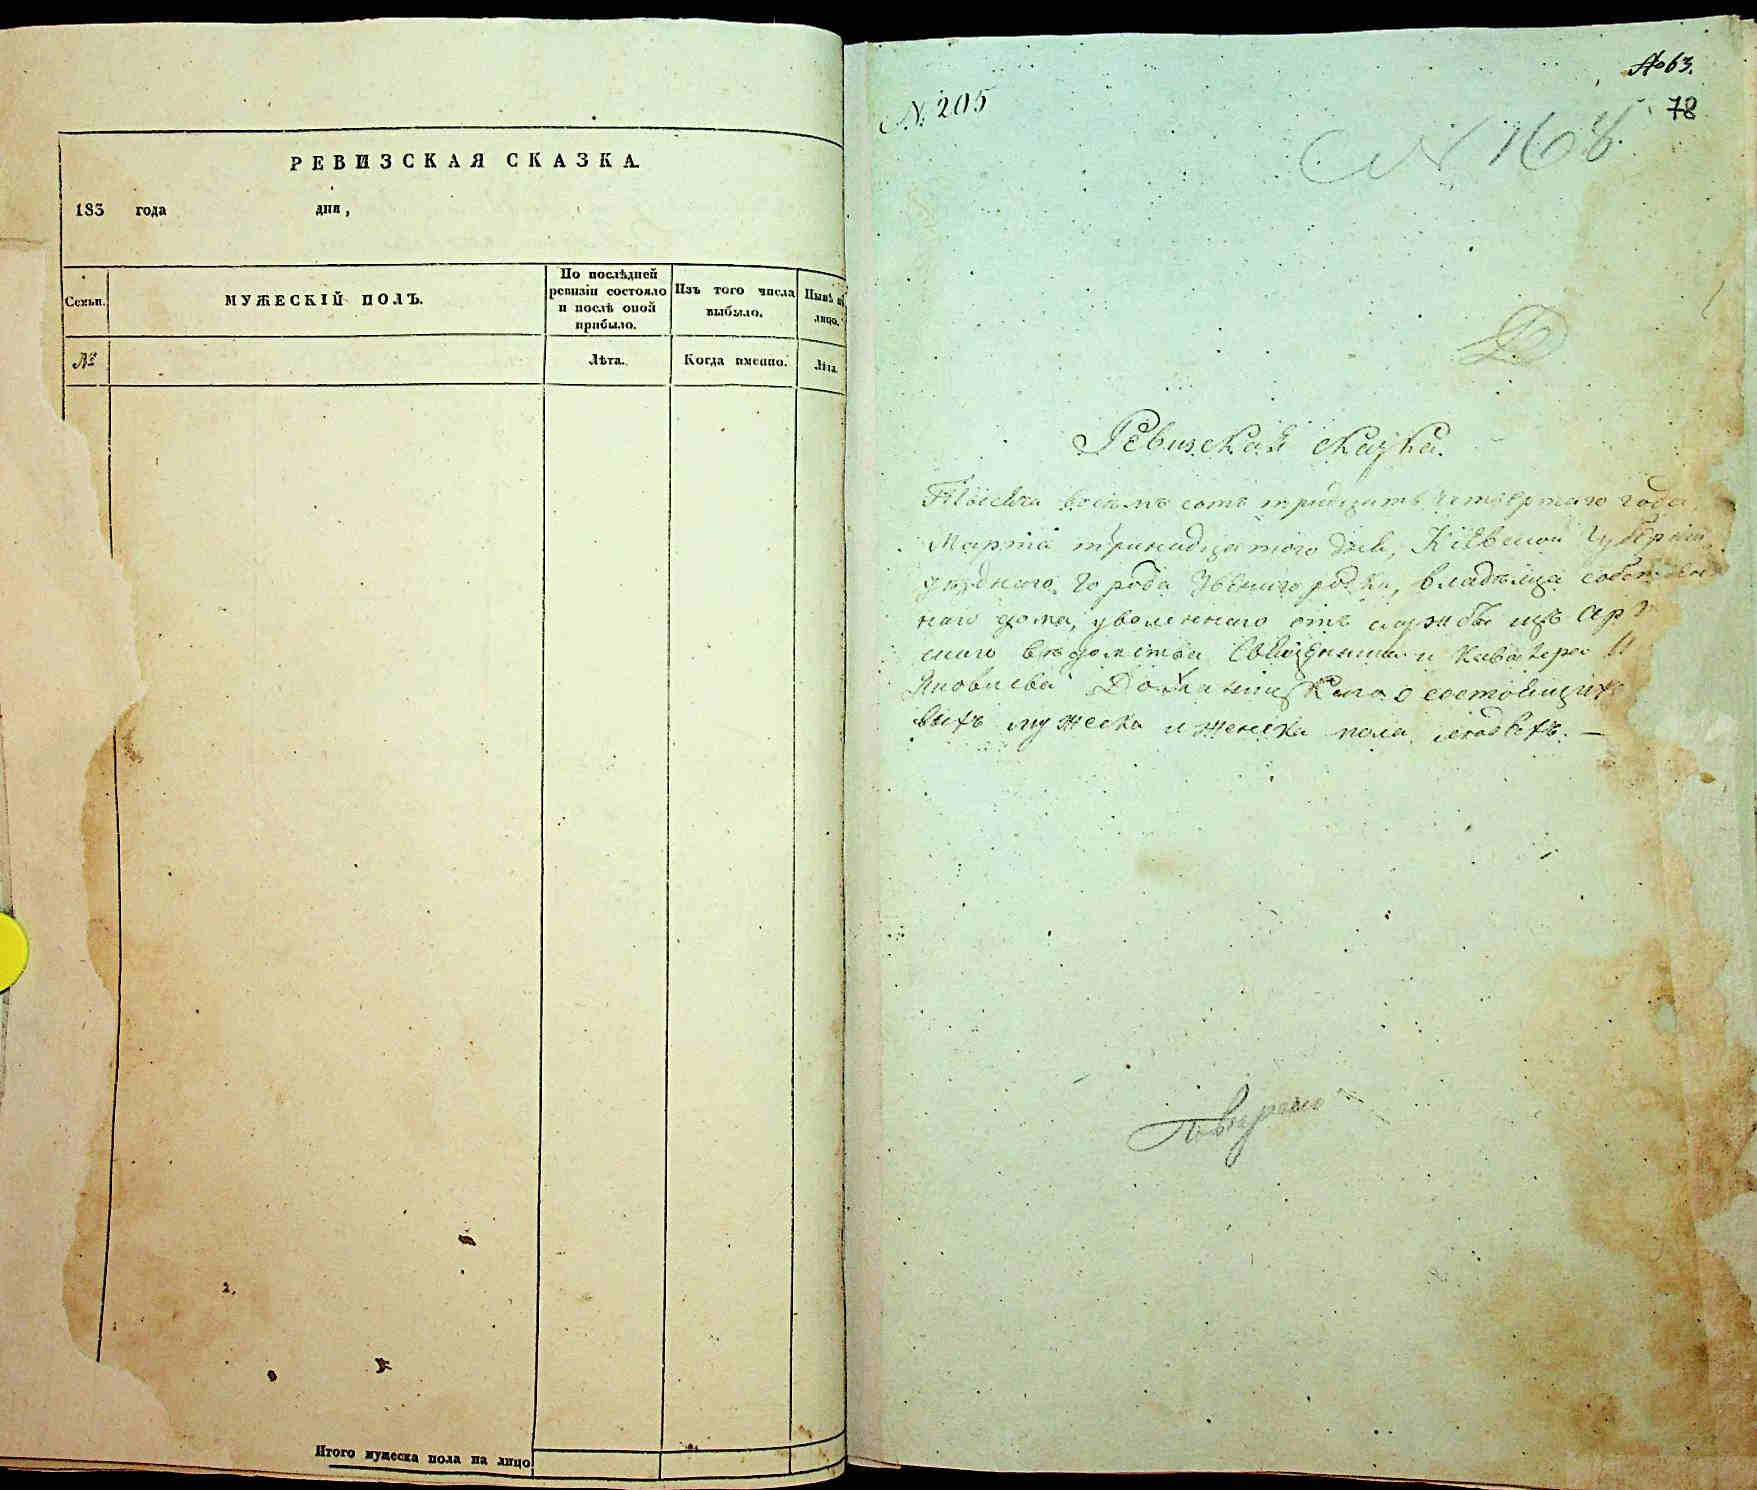 РЕВИЗСКАЯ СКАЗКА.
183 года дня,
Семьи.
МУЖЕСКІЙ ПОЛЪ.
По послѣдней
ревизіи состояло
и послѣ оной
прибыло.
Изъ того числа
выбыло.
Нынѣ
лицо.
№
Лѣта.
Когда именно.
Лѣта.
2.
Итого мужеска пола на лицо
№ 63.
78
N. 205
N 168.
Ревизская сказка.
Тысяча восемь сотъ тридцать четвертаго года
Марта тринадцатого дня, Кіевской Губерніи
уѣзднаго города Звенигородки, владѣльца собствен
наго дома, уволеннаго отъ службы изъ
скаго вѣдомства Священника и Кавалера
Яковлева о состоящихъ
мужеска и женска пола людѣхъ. —